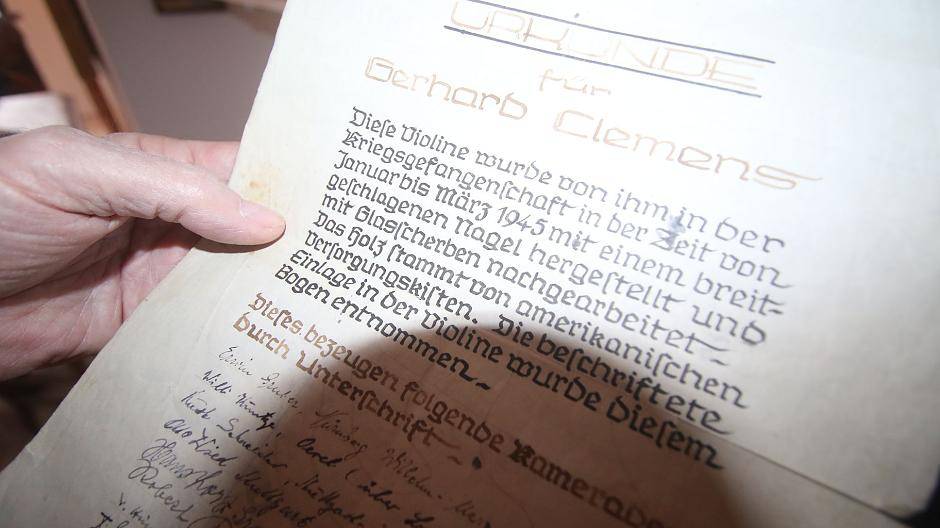 URKUNDE
für
Gerhard Clemens
Dieſe Violine wurde von ihm in der
Kriegsgefangenſchaft in der Zeit von
Januar bis März 1945 mit einem breit-
geſchlagenen Nagel hergeſtellt und
mit Glasſcherben nachgearbeitet-
Das Holz ſtammt von amerikaniſchen
Verſorgungskiſten. Die beſchriftete
Einlage in der Violine wurde dieſem
Bogen entnommen-
Dieſes bezeugen folgende Kamerade
durch Unterſchrift-
Nürnberg Wilhelm
Willi
Schneider, Stuttgart
Otto
Hans
Robert